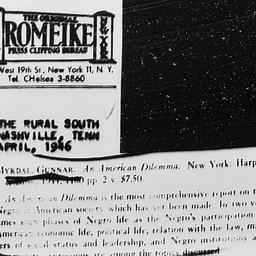 THE ORIGINAL
ROMEIKE
PRESS CLIPPING BUREAU
NEW YORK
West 19th St., New York 11, N. Y.
Tel. CHelsea 3-8860
THE RURAL SOUTH
NASHVILLE, TENN
APRIL, 1946
MYRDAL GUNNAR. An American Dilemma. New York: Harp
pp. 2 v. $7.50.
An American Dilemma is the most comprehensive report on t
Negro in American society which has yet been made. In two v
phases of Negro life as the Negro's participation
American economic life, political life, relation with the law, ma
ers of social status and leadership, and Negro institutions
are among the topics discussed